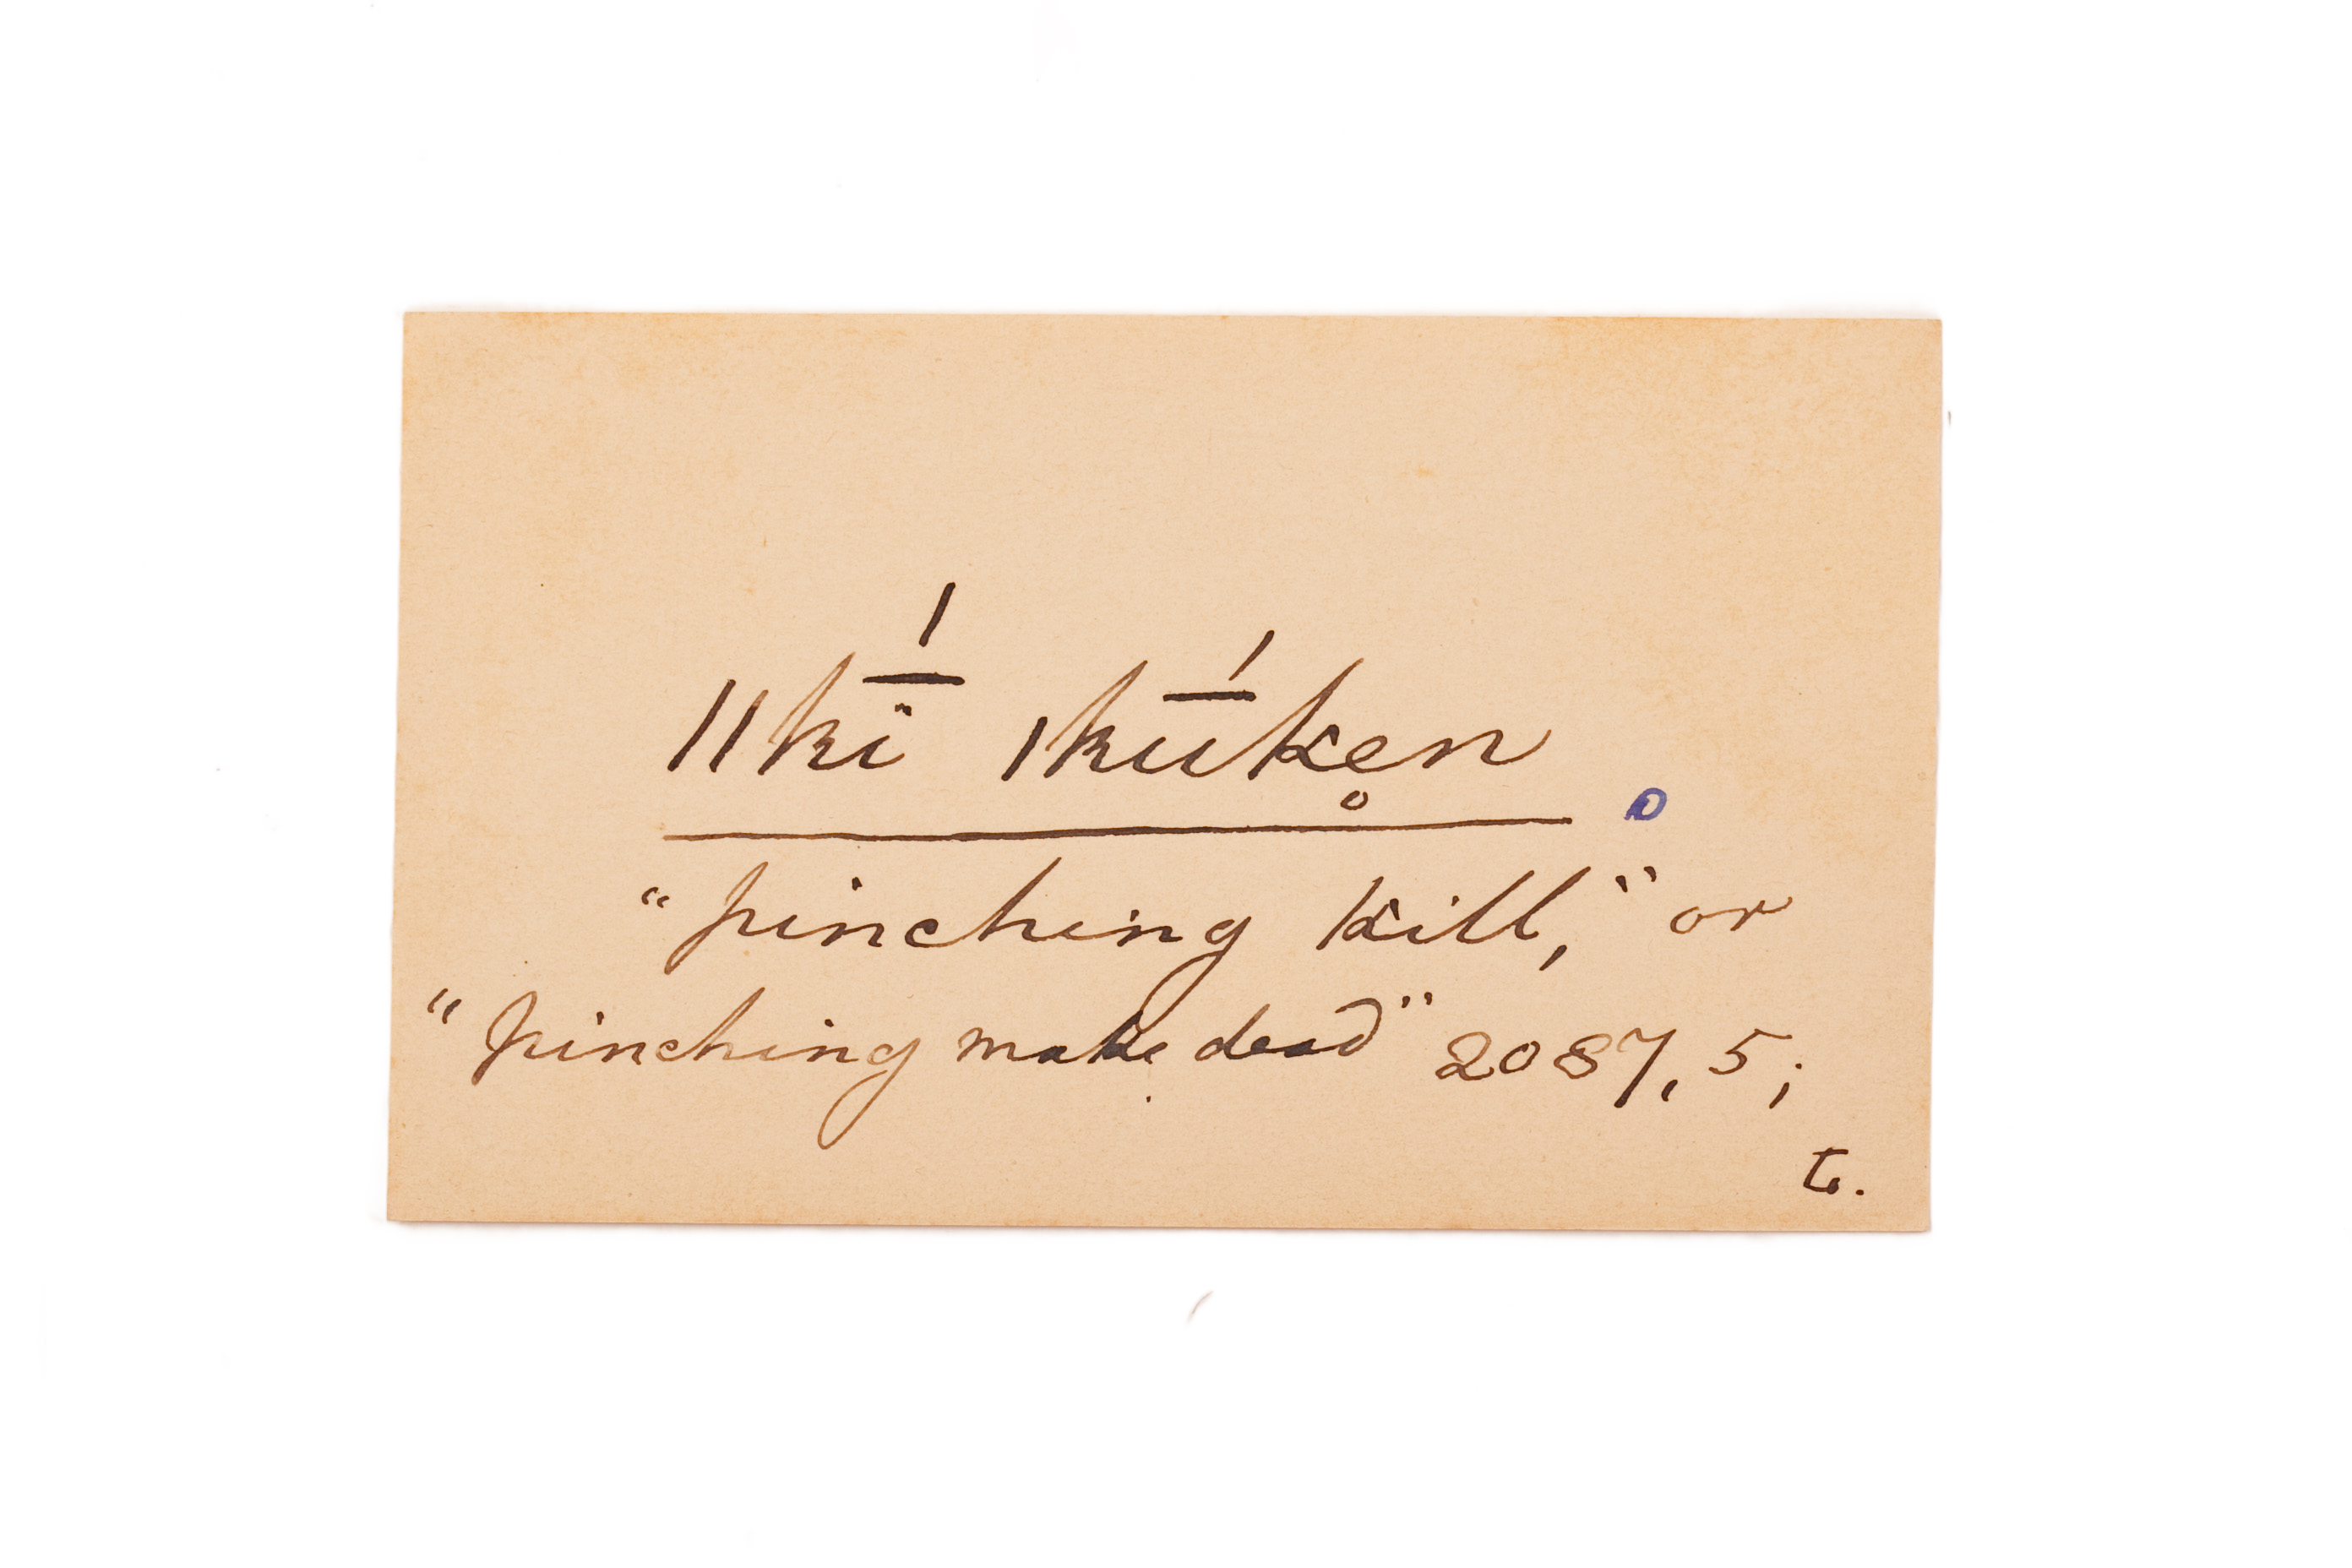 ǁkī́ ǀkū́k̥en
"pinching kill," or
"pinching make dead" 2087, 5;
t.